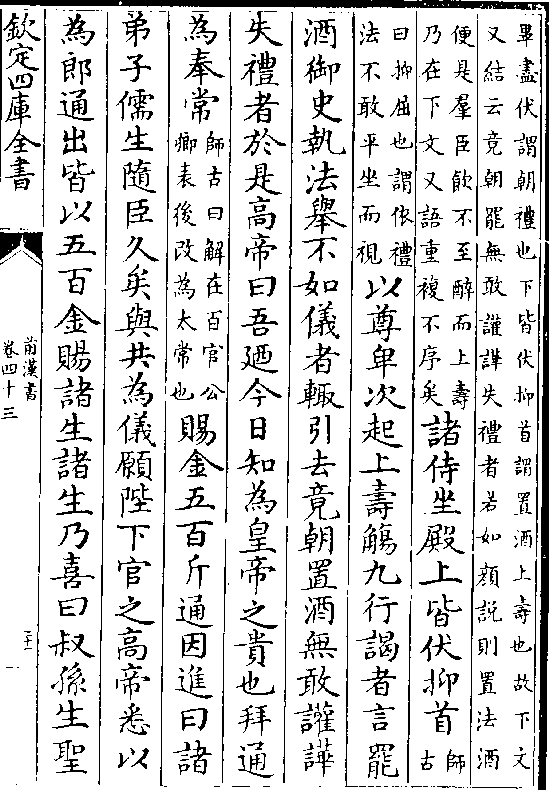 畢盡伏謂朝禮也下皆伏抑首謂置酒上壽也故下文
又結云竟朝罷無敢讙譁失禮者若如顔説則置法酒
便是羣臣飲不至醉而上壽
乃在下文又語重複不序矣
諸侍坐殿上皆伏抑首
師
古
曰抑屈也謂依禮
法不敢平坐而視
以尊卑次起上壽觴九行謁者言罷
酒御史執法舉不如儀者輙引去竟朝置酒無敢讙譁
失禮者於是高帝曰吾廼今日知為皇帝之貴也拜通
為奉常
師古曰解在百官公
卿表後改為太常也
賜金五百斤通因進曰諸
弟子儒生隨臣久矣與共為儀願陛下官之高帝悉以
為郎通出皆以五百金賜諸生諸生乃喜曰叔孫生聖
欽定四庫全書
前漢書
卷四十三